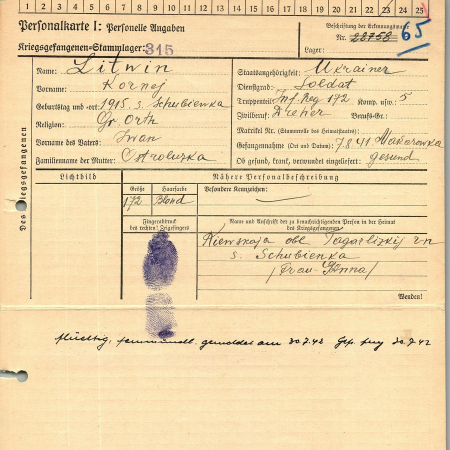 1 2 3 4 5 6 7 8 9 10 11 12 13 14 15 16 17 18 19 20 21 22 23 24 25
Personalkarte I: Personelle Angaben
Kriegsgefangenen-Stammlager: 315
Beschriftung der Erkennungsmarke
Nr. 28758 65
Lager:
Des Kriegsgefangenen
Name: Litwin
Vorname: Kornej
Geburtstag und -ort: 1915 s. Schubienka
Religion: Gr. Orth
Vorname des Vaters: Iwan
Familienname der Mutter: Ostroluzka
Staatsangehörigkeit: Ukrainer
Dienstgrad: Soldat
Truppenteil: Inf. Reg 172 Komp. usw.: 5
Zivilberuf: Dreher Berufs-Gr.:
Matrikel Nr. (Stammrolle des Heimatstaates):
Gefangennahme (Ort und Datum): 7.8.41 Makarowka
Ob gesund, krank, verwundet eingeliefert: gesund
Lichtbild
Nähere Personalbeschreibung
Größe Haarfarbe Besondere Kennzeichen:
172 Blond
Fingerabdruck
des rechten! Zeigefingers
Name und Anschrift der zu benachrichtigenden Person in der Heimat
des Kriegsgefangenen
Kiewskaja obl.
s. Schubienka
(Frau - Anna)
Wenden!
flüchtig, gemeldet am 30.7.42